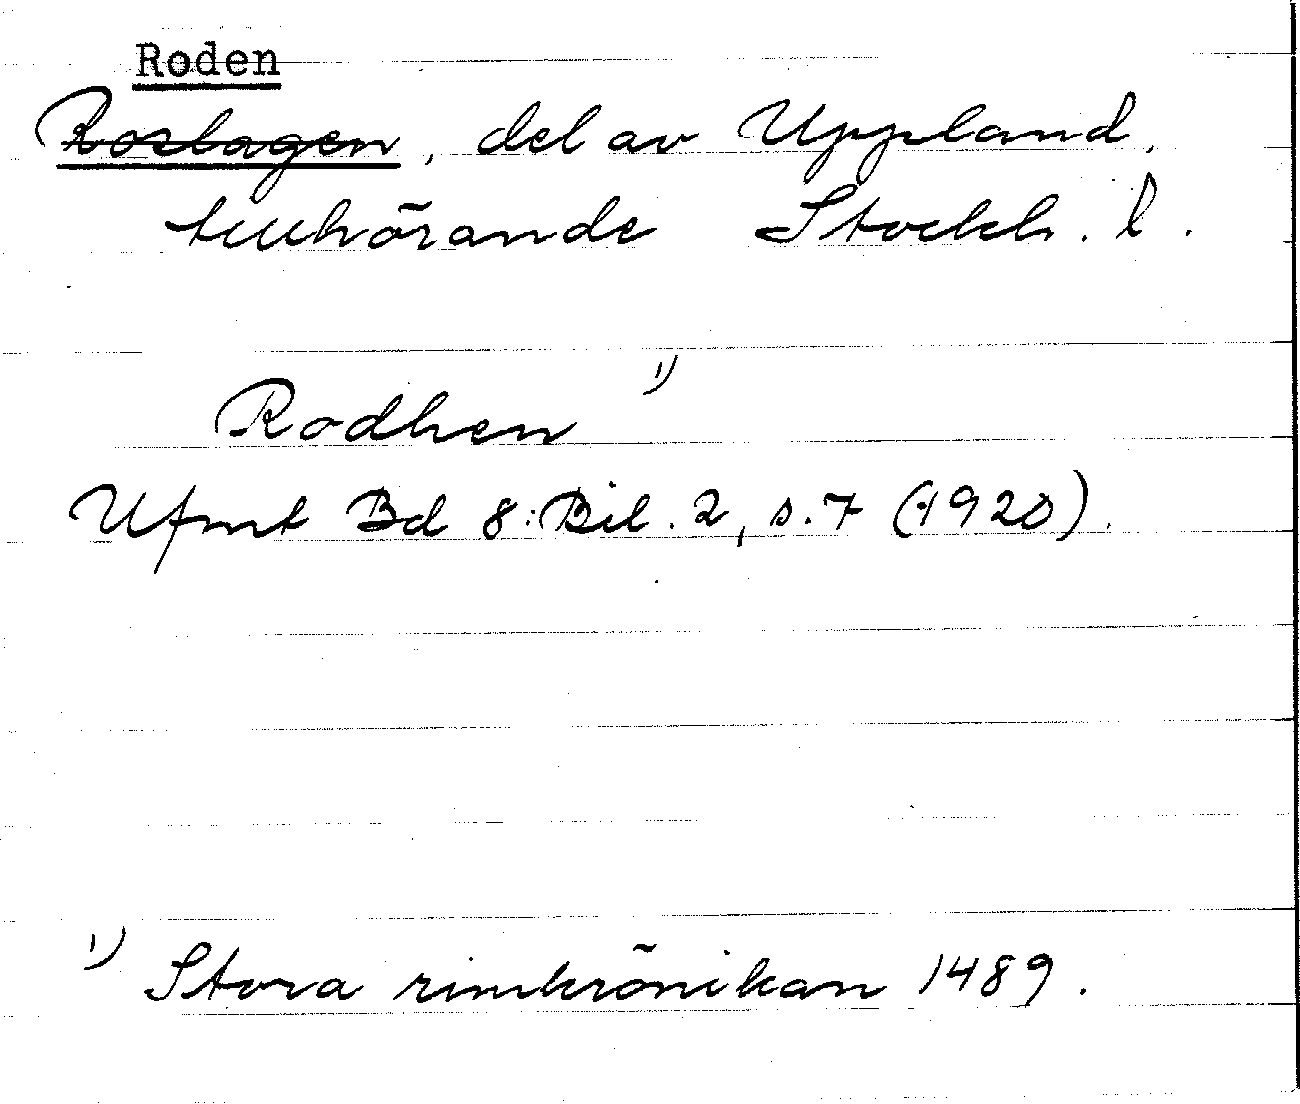 Roden
Roslagen, del av Uppland,
tillhörande Stockh. l.
Rodhen 1)
Ufmt Bd 8: Bil. 2, s. 7 (1920).
1) Stora rimkrönikan 1489.